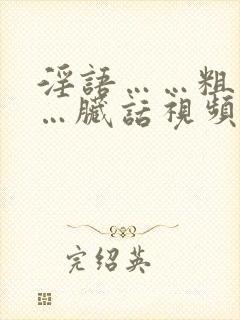 淫語……粗
…臟話視頻
完绍英